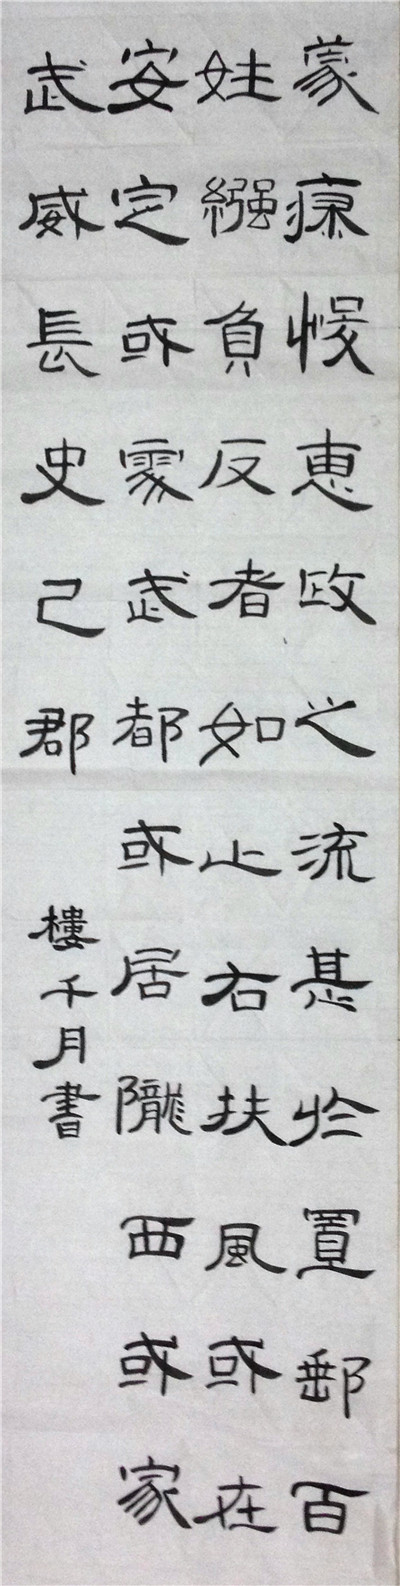 蒙瘳悛惠政之流甚於置郵百
姓繦負反者如止右扶風或在
安定或處武都或居隴西或家
武威長史己郡
樓千月書